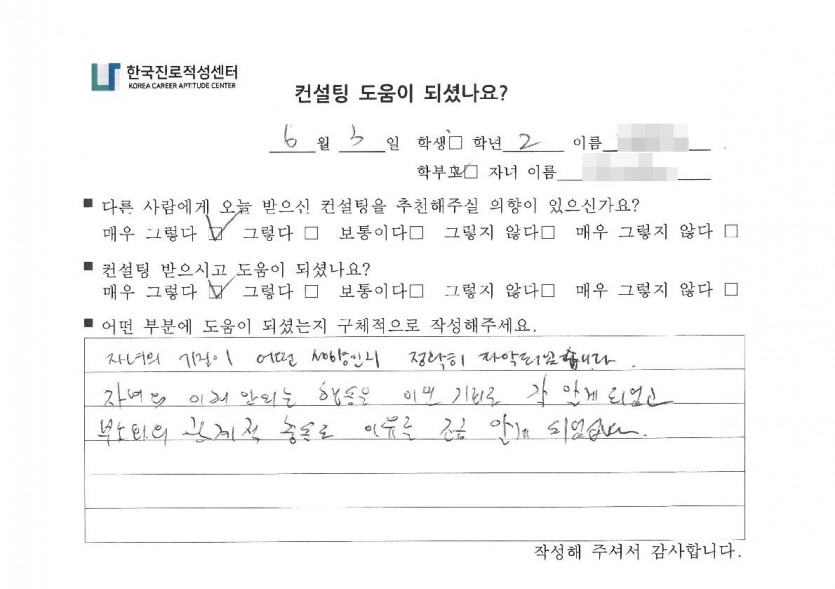 한국진로적성센터
KOREA CAREER APTITUDE CENTER
컨설팅 도움이 되셨나요?
6 월 3 일 학생□ 학년 2 이름
학부모☑ 자녀 이름
■ 다른 사람에게 오늘 받으신 컨설팅을 추천해주실 의향이 있으신가요?
매우 그렇다 ☑ 그렇다 □ 보통이다□ 그렇지 않다□ 매우 그렇지 않다 □
■ 컨설팅 받으시고 도움이 되셨나요?
매우 그렇다 ☑ 그렇다 □ 보통이다□ 그렇지 않다□ 매우 그렇지 않다 □
■ 어떤 부분에 도움이 되셨는지 구체적으로 작성해주세요.
자녀의 기질이 어떤 성향인지 정확히 파악되었습니다.
자녀의 이해 안되는 행동을 이번 기회로 잘 알게되었고
부모와의 관계적 충돌도 이유를 조금 알게 되었습니다.
작성해 주셔서 감사합니다.